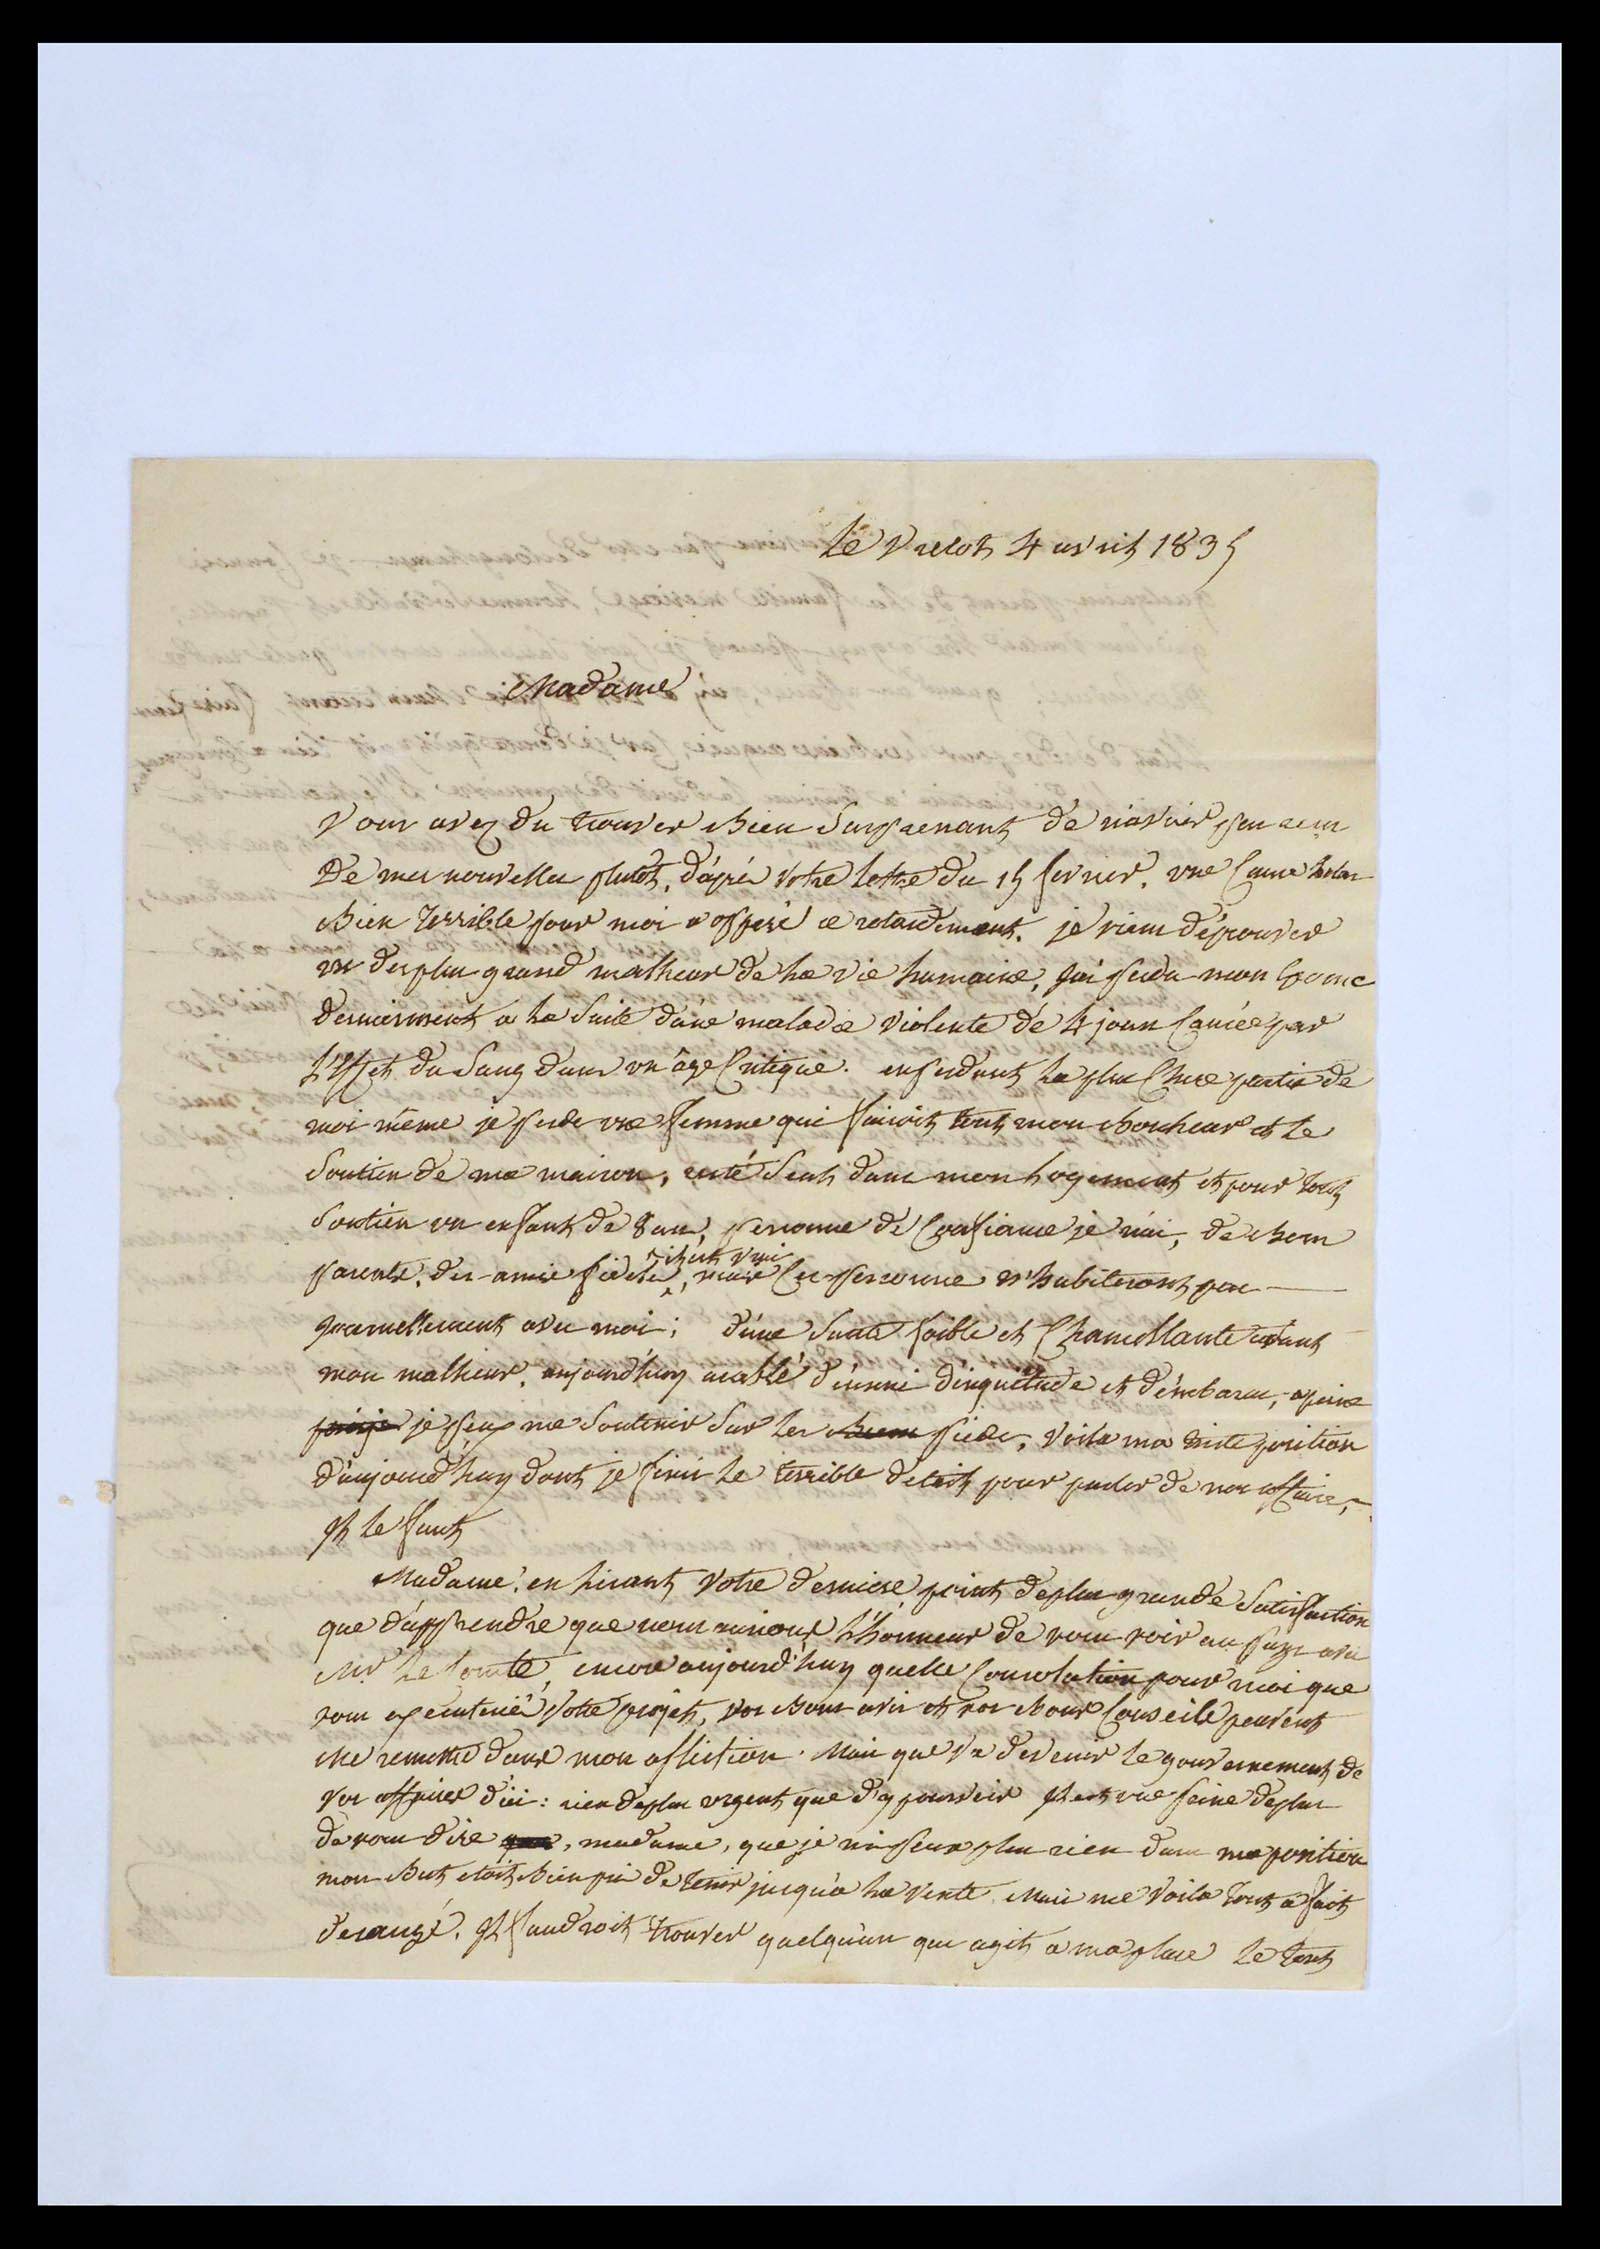 Le Vretot 4 avril 1835
Madame
Vous avez du trouver bien surprenant de n'avoir pas recu
De mes nouvelles plutôt, d'après votre lettre du 15 fevrier. une cause helas
bien terrible pour moi a opperé ce retardement. je viens d'éprouver
un des plus grand malheur de la vie humaine, j'ai perdu mon Epouse
dernierement a la suite d'une maladie violente de 4 jours causée par
l'Effet du sang dans un âge Critique. en perdant la plus chere partie de
moi même je perds une femme qui faisoit tout mon bonheur et le
soutien de ma maison, resté seul dans mon logement et pour tout
soutien un enfant de 8 ans, personne de Confiance je n'ai, de bons
parents, des amis fideles, il est vrai mais Ces personne n'habiteront pas
journellement avec moi; d'une santé foible et Chancellante avant
mon malheur, aujourd'huy acablé d'ennui d'inquietude et d'embaras, a peine
je peux me soutenir sur les pieds, Voila ma triste position
d'aujourd'huy dont je finis le terrible detail pour parler de vos affaires,
Il le faut
Madame, en lisant Votre derniere point de plus grande Satisfaction
que d'apprendre que nous aurions l'honneur de vous voir au pays avec
Mr. Le Comte, encore aujourd'huy quelle Consolation pour moi que
vous executerié votre projet, vos bons avis et vos bons Conseils peuvent
Me remettre dans mon affliction. Mais que va devenir le gouvernement de
Vos affaires d'ici: rien de plus urgent que d'y pourvoir Il est une peine de plus
de vous dire, madame, que je n'y peux plus rien dans ma position
mon but etoit bien pris de tenir jusqu'a la vente. Mais me voila tout a fait
derangé. Il faudroit trouver quelqu'un qui agit a ma place Le tout